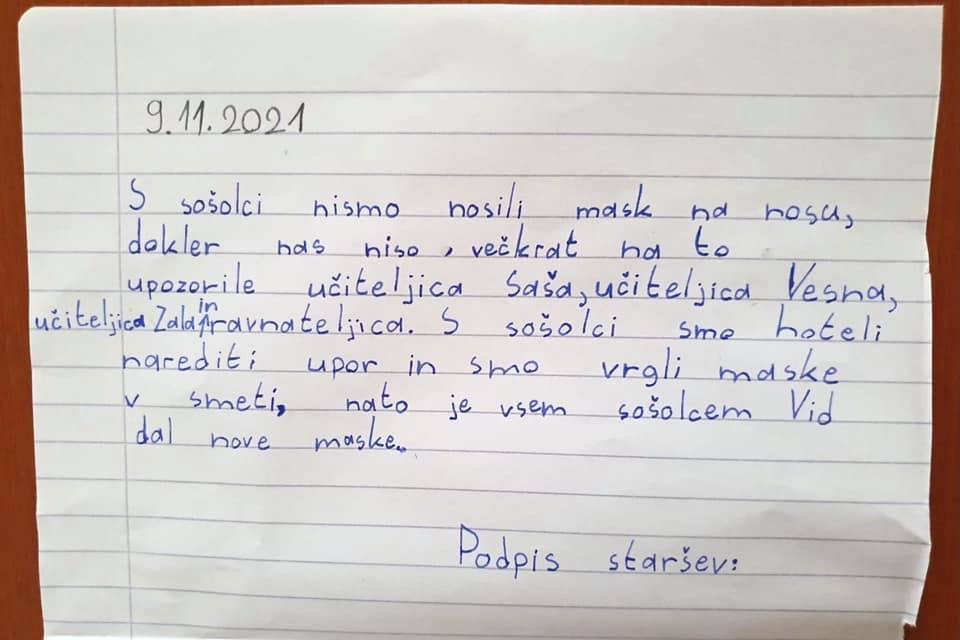 9.11.2021
S sošolci nismo nosili mask na nosu,
dokler nas niso, večkrat na to
upozorile učiteljica Saša, učiteljica Vesna,
učiteljica Zala in ravnateljica. S sošolci smo hoteli
narediti upor in smo vrgli maske
v smeti, nato je vsem sošolcem Vid
dal nove maske.
Podpis staršev: